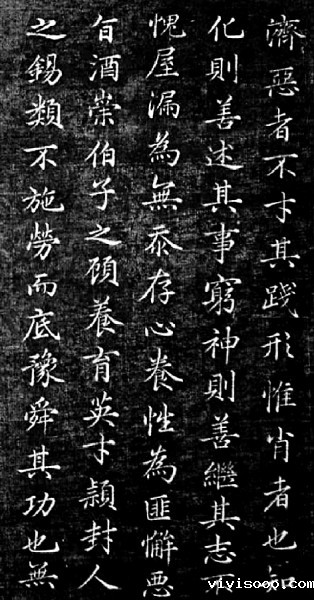 濟惡者不才其踐形惟肖者也知
化則善述其事窮神則善繼其志
愧屋漏為無忝存心養性為匪懈惡
旨酒崇伯子之顧養育英才頴封人
之錫類不施勞而底豫舜其功也無
vivisooo.com